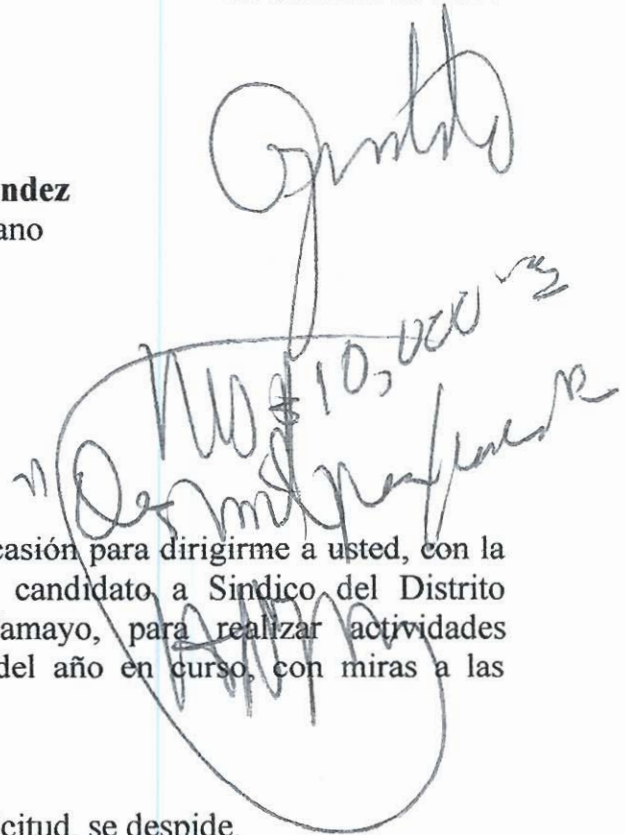 ndez
ano
10,000
mil
casión para dirigirme a usted, con la
candidato a Sindico del Distrito
amayo, para realizar actividades
del año en curso, con miras a las
citud se despide